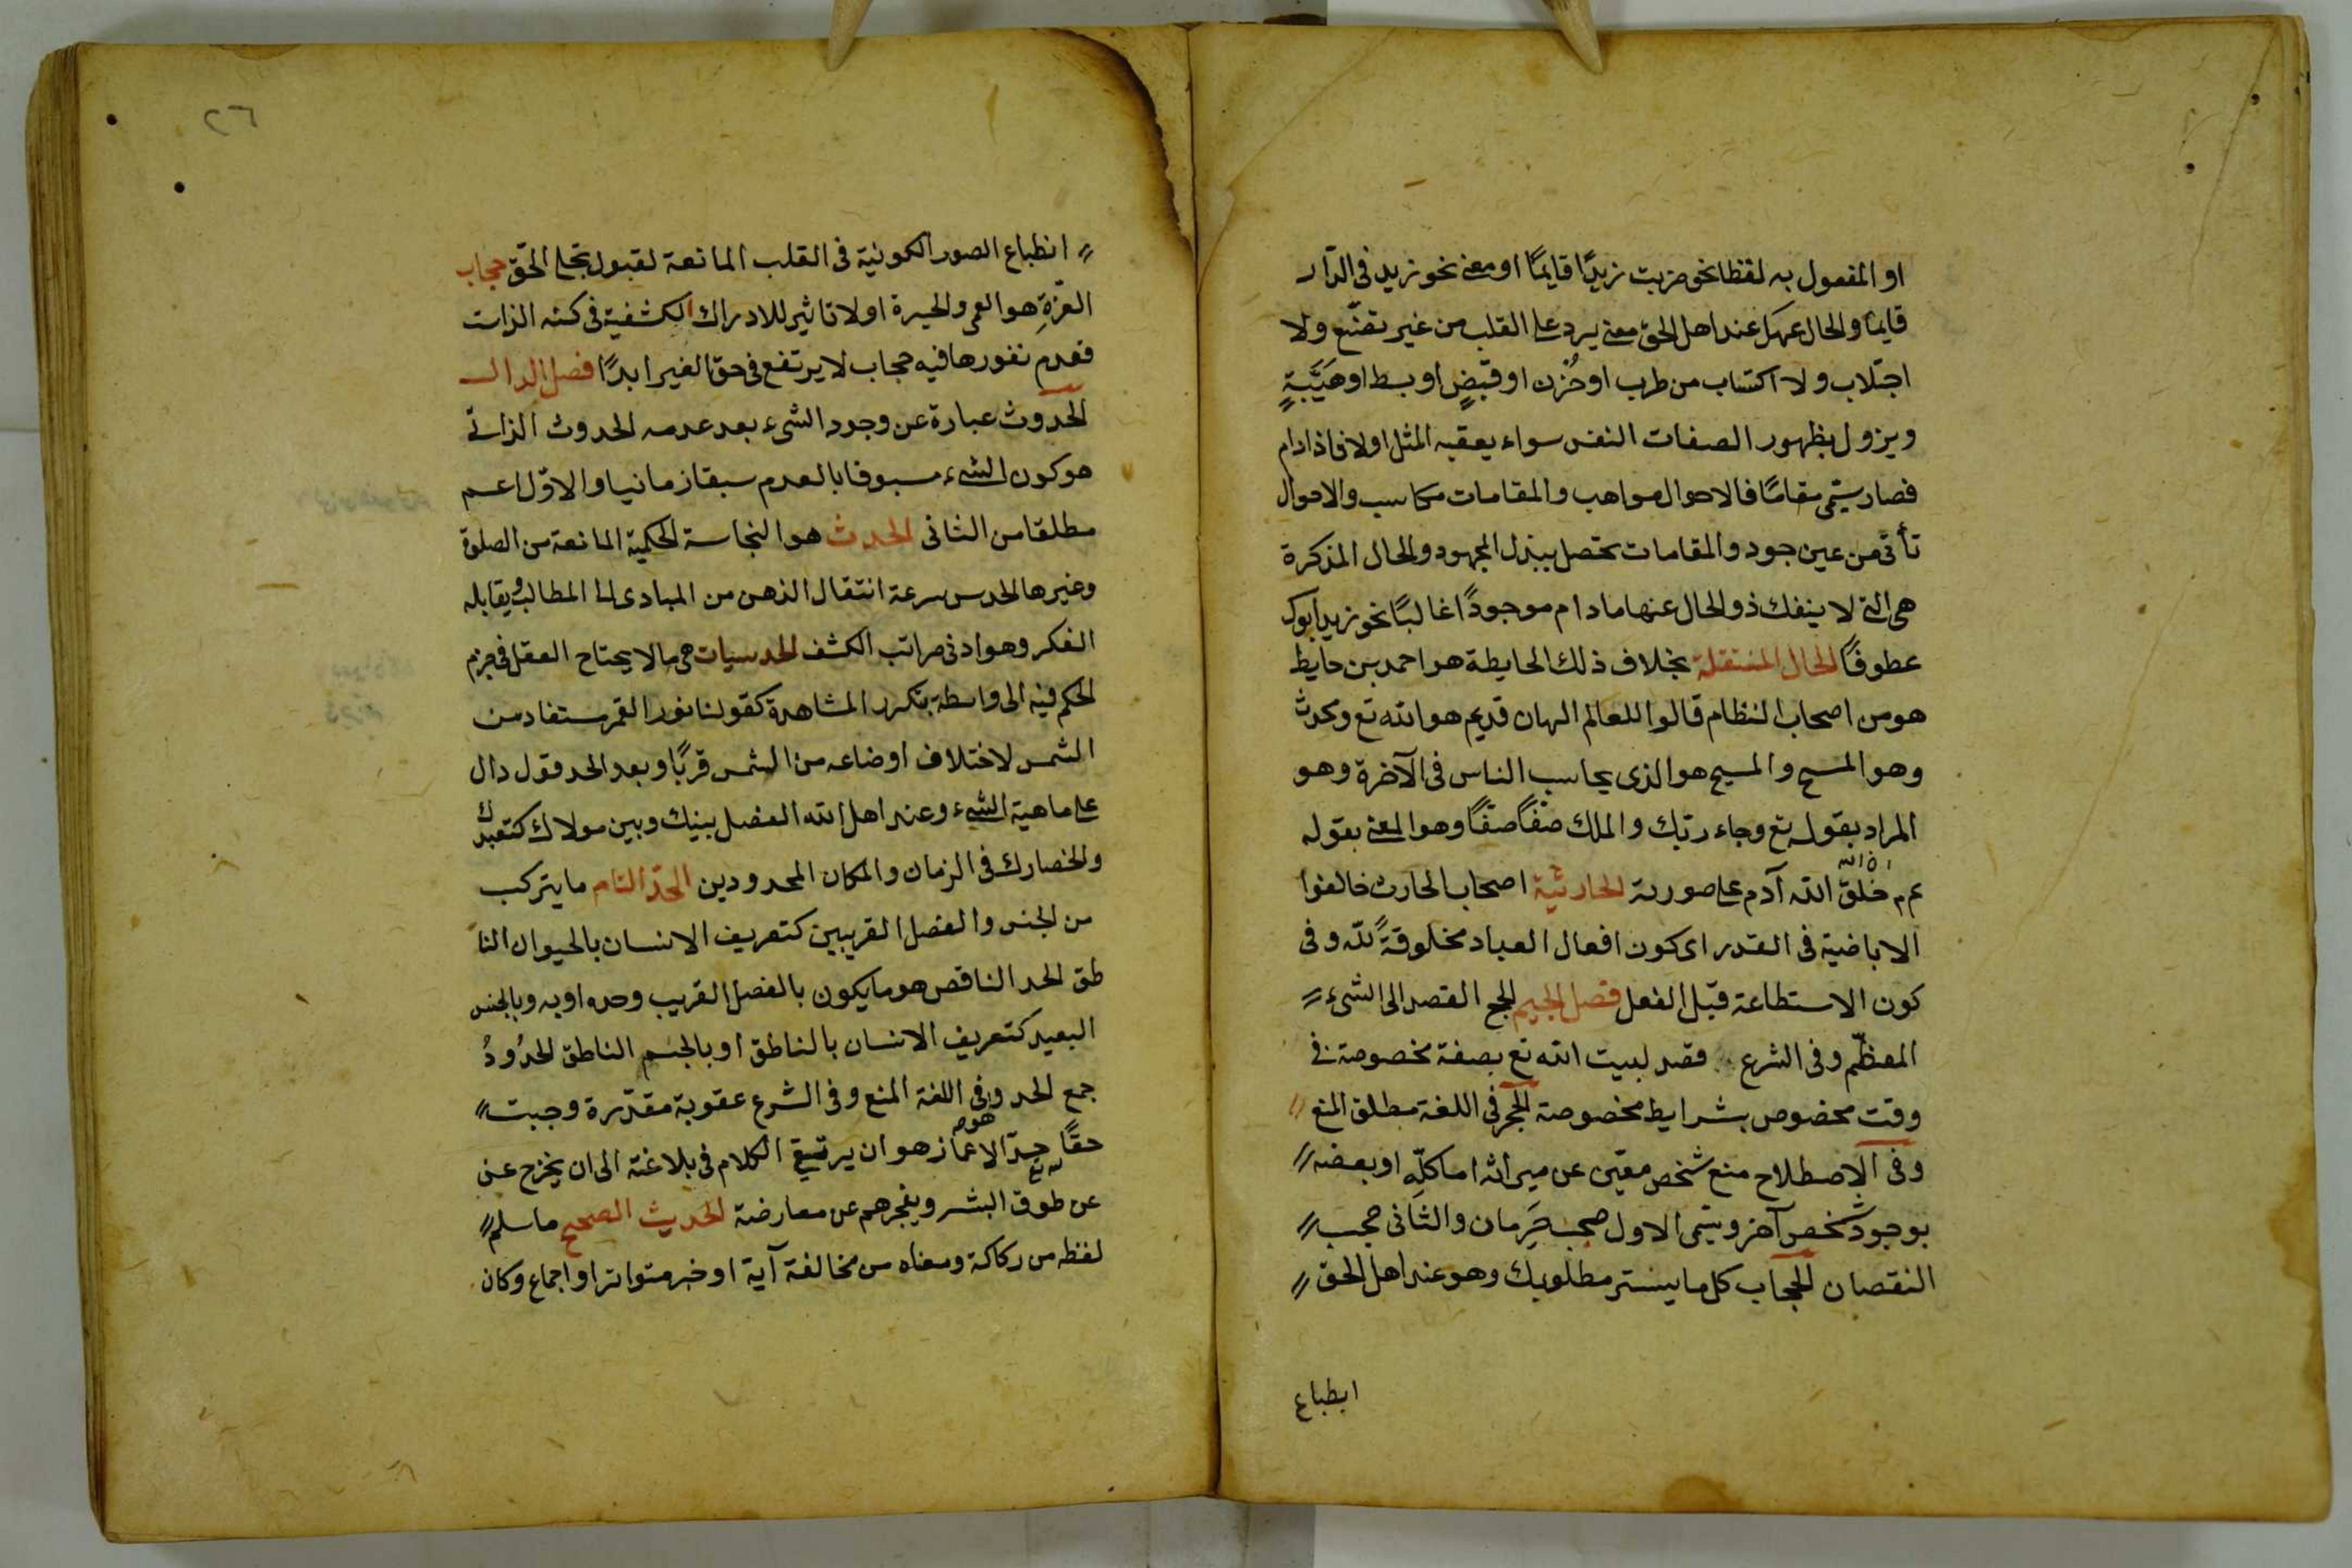 او المفعول به لفظا نحو ضربت زيدًا قايمًا او معنى نحو زيد فى الدّار
قايمًا والحال عند اهل الحق معنى يرد على القلب من غير تصنّع ولا
اجتلاب ولا اكتساب من طرب او حُزن او قبضٍ او بسط او هَيَبةٍ
ويزول بظهور الصفات النفس سواء يعقبه المثل اولا فاذا دام
فصار يسمّى مقامًا فالاحوال مواهب والمقامات مكاسب والاحوال
تأتى من عين جود والمقامات تحصل ببذل المجهود والحال المذكرة
هى التى لا ينفك ذو الحال عنها مادام موجودًا غالبًا نحو زيد ابوك
عطوفًا الحال المنتقلة بخلاف ذلك الحايطة هو احمد بن حايط
هو من اصحاب النظام قالوا للعالم الهان قديم هو الله تع ومحدث
وهو المسيح والمسيح هو الذى يحاسب الناس فى الآخرة وهو
المراد بقوله تع وجاء ربّك والملك صفًا صفًا وهو المعنى بقوله
ان الله
عم خلق الله آدم على صورته الحارثية اصحاب الحارث خالفوا
الاباضية فى القدر اى كون افعال العباد مخلوقةً لله وفى
كون الاستطاعة قبل الفعل فصل الجيم الحج القصد الى الشىء
المعظّم وفى الشرع قصد لبيت الله تع بصفة مخصوصة فى
وقت مخصوص بشرايط مخصوصة الحجر فى اللغة مطلق المنع
وفى الاصطلاح منع شخص معيّن عن ميراثه اما كلّه او بعضه
بوجود شخص آخر ويسمى الاول حجب حَرِمان والثانى حجب
النقصان الحجاب كل ما يستر مطلوبك وهو عند اهل الحق
انطباع
٢٦
انطباع الصور الكونية فى القلب المانعة لقبول تجلى الحقّ حجاب
العزّةِ هو العمى والحيرة اولا تاثير للادراك الكشفية فى كنه الذات
فعدم نفورها فيه حجاب لا يرتفع فى حق الغير ابدًا فصل الدال
الحدوث عبارة عن وجود الشىء بعد عدمه الحدوث الذاتى
هو كون الشىء مسبوقا بالعدم سبقا زمانيا والاوّل اعم
مطلقا من الثانى الحدث هو النجاسة الحكمية المانعة من الصلوة
وغيرها الحدس سرعة انتقال الذهن من المبادى الى المطالب ويقابله
الفكر وهو ادنى مراتب الكشف الحدسيات هى ما لا يحتاج العقل فى جزم
الحكم فيه الى واسطة بتكرر المشاهدة كقولنا نور القمر مستفاد من
الشمس لاختلاف اوضاعه من الشمس قربًا وبعد الحد قول دال
على ماهية الشىء وعند اهل الله الفصل بينك وبين مولاك كتعبدك
والحصارك فى الزمان والمكان المحدودين الحدّ التام ما يتركب
من الجنس والفصل القريبين كتعريف الانسان بالحيوان النا
طق الحد الناقص هو ما يكون بالفصل القريب وحده او به وبالجنس
البعيد كتعريف الانسان بالناطق او بالجسم الناطق الحدُودُ
جمع الحد وفى اللغة المنع وفى الشرع عقوبة مقدّرة وجبت
حقًا حدّ الاعجاز هو ان يرتقى الكلام فى بلاغته الى ان يخرج عن
عن طوق البشر ويعجزهم عن معارضة الحديث الصحيح ما سلم
لفظه من ركاكة ومعناه من مخالفة آية او خبر متواتر او اجماع وكان